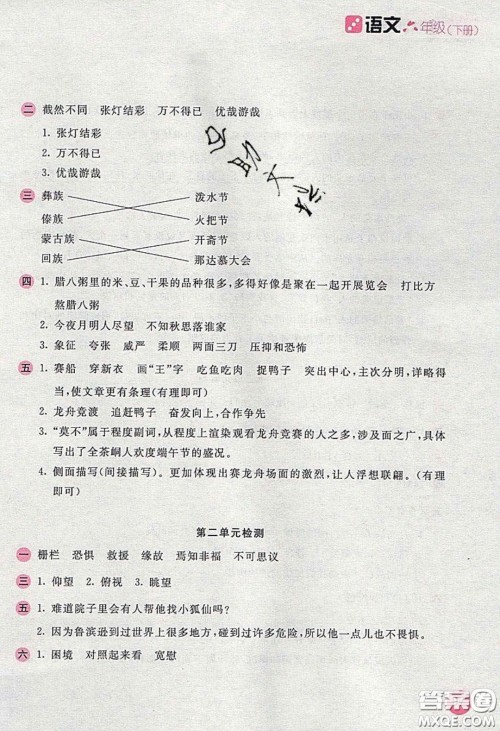 语文 六年级(下册)
二 截然不同 张灯结彩 万不得已 优哉游哉
1. 张灯结彩
2. 万不得已
3. 优哉游哉
三 彝族 泼水节
傣族 火把节
蒙古族 开斋节
回族 那达慕大会
四 1. 腊八粥里的米、豆、干果的品种很多,多得好像是聚在一起开展览会 打比方
熬腊八粥
2. 今夜月明人尽望 不知秋思落谁家
3. 象征 夸张 威严 柔顺 两面三刀 压抑和恐怖
五 1. 赛船 穿新衣 画“王”字 吃鱼吃肉 捉鸭子 突出中心,主次分明,详略得
当,使文章更有条理(有理即可)
2. 龙舟竞渡 追赶鸭子 奋发向上,合作争先
3. “莫不”属于程度副词,从程度上渲染观看龙舟竞赛的人之多,涉及面之广,具体
写出了全茶峒人欢度端午节的盛况。
4. 侧面描写(间接描写)。更加体现出赛龙舟场面的激烈,让人浮想联翩。(有理
即可)
第二单元检测
一 栅栏 恐惧 救援 缘故 焉知非福 不可思议
三 1. 仰望 2. 俯视 3. 眺望
五 1. 难道院子里会有人帮他找小狐仙吗?
2. 因为鲁滨逊到过世界上很多地方,碰到过许多危险,所以他一点儿也不畏惧。
六 1. 困境 对照起来看 宽慰
答案圈
MXQE.COM